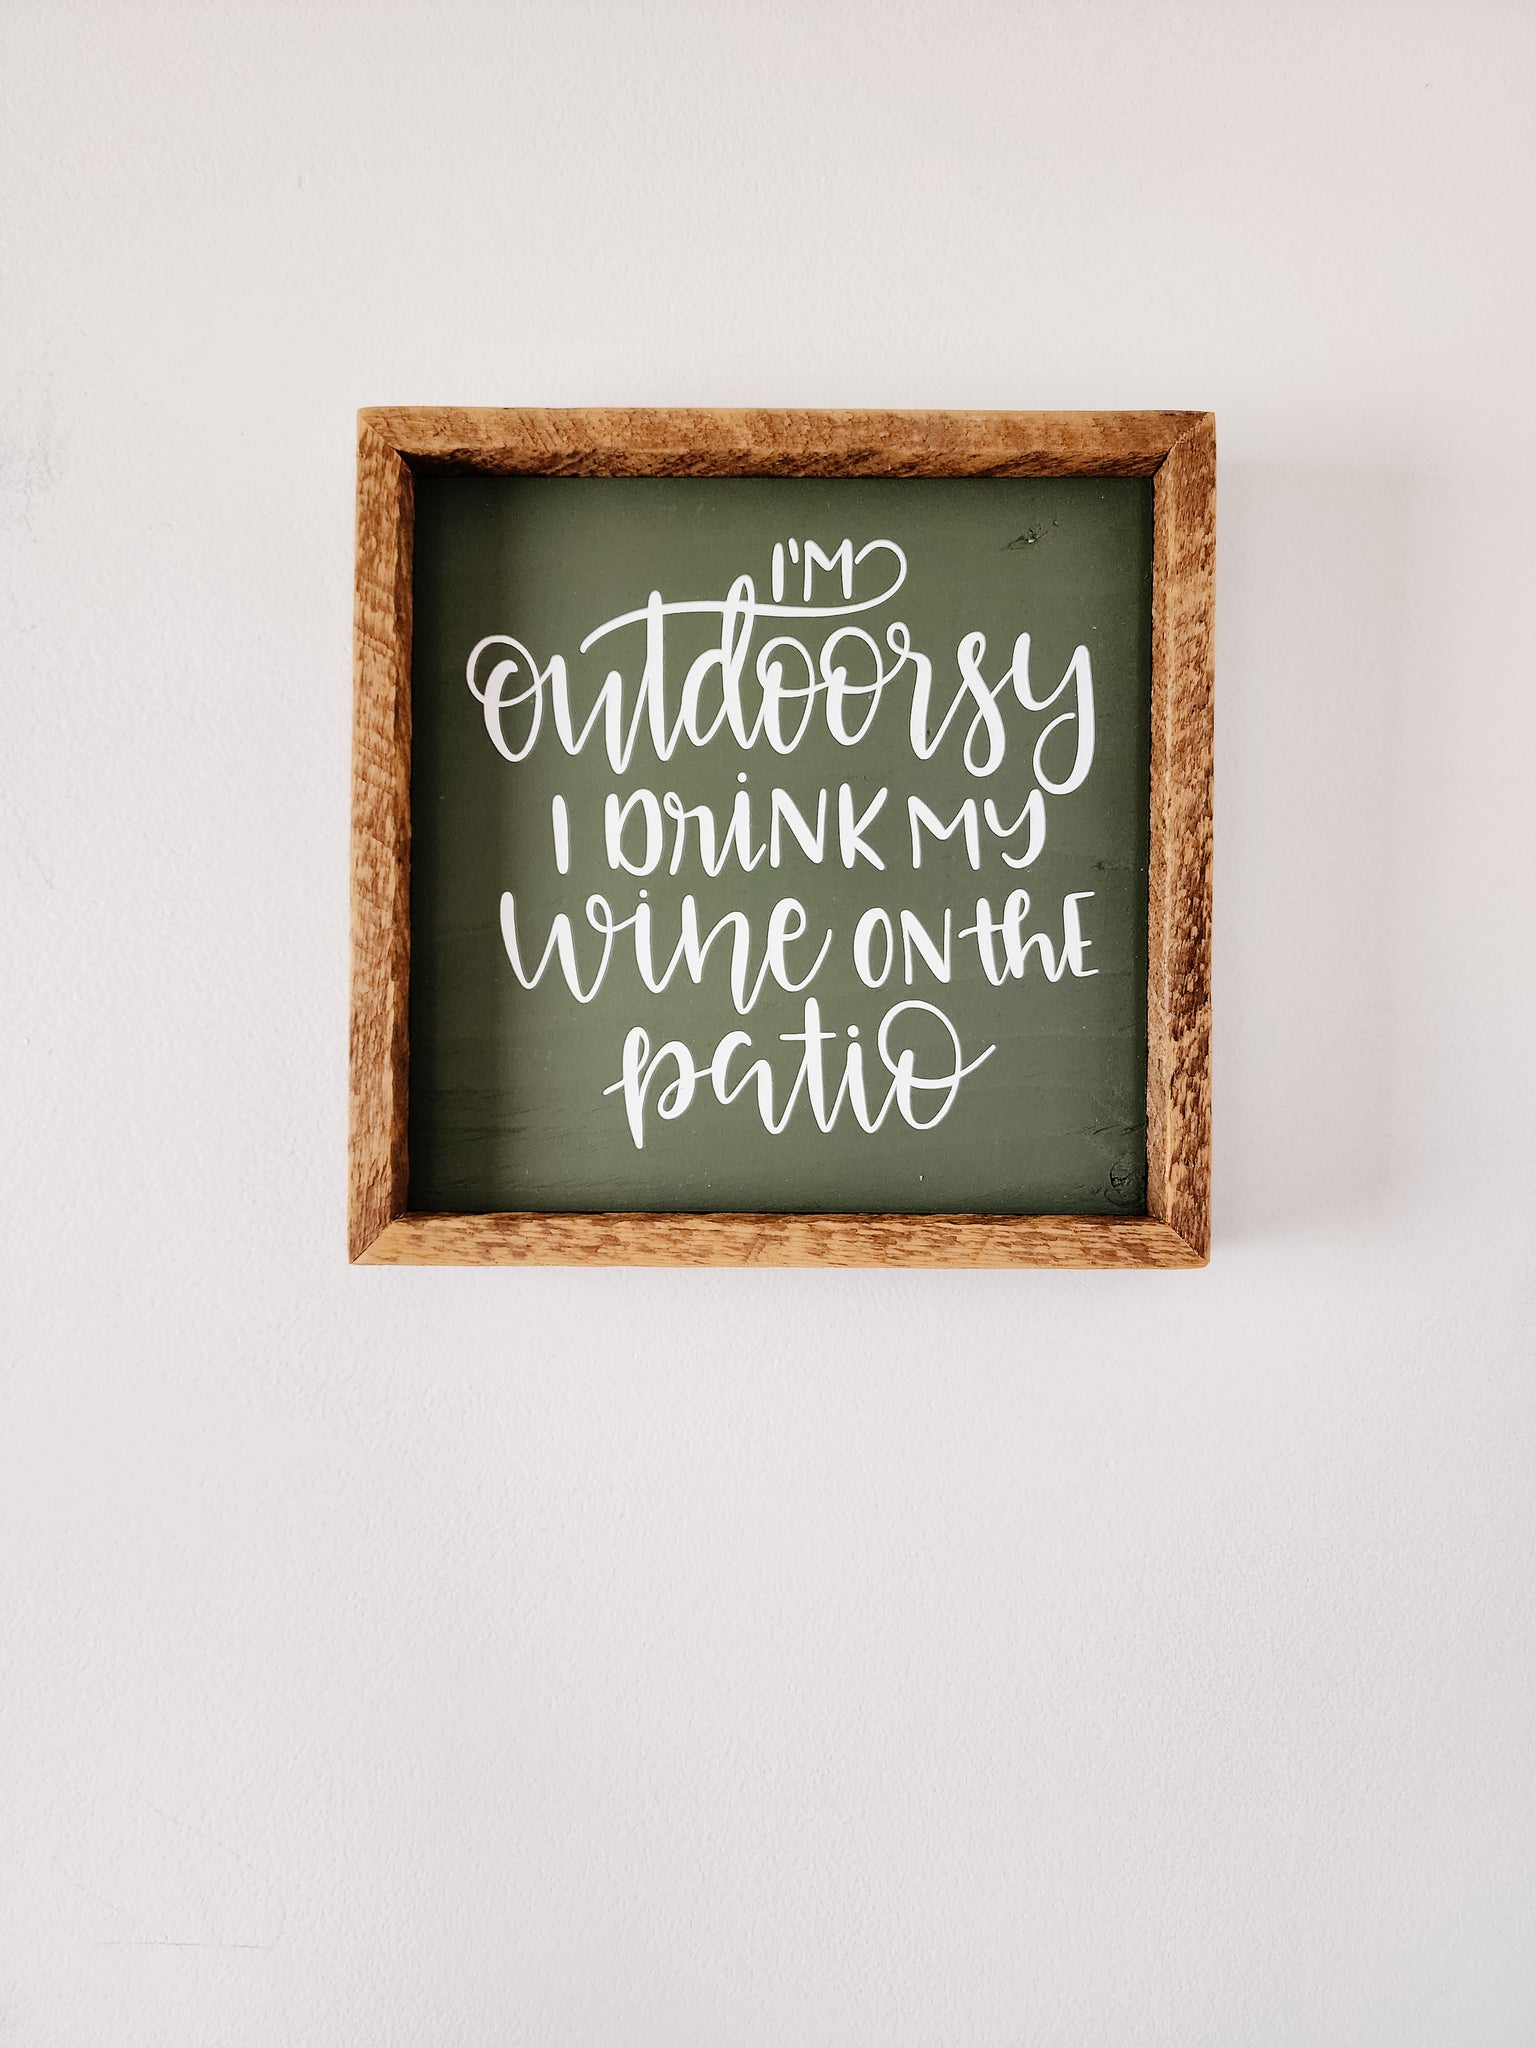 I'M
outdoorsy
I DrinK MY
wine ON thE
patio